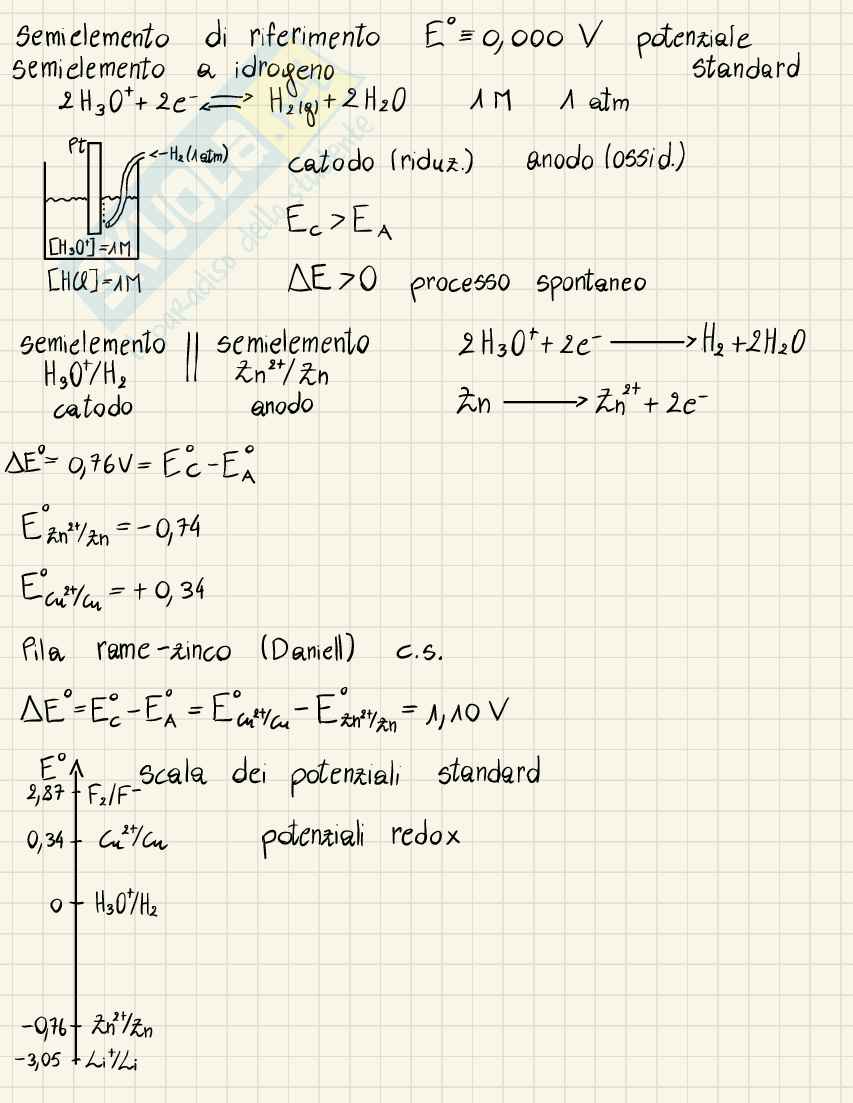 Semielemento di riferimento E° ≡ 0,000 V potenziale standard
semielemento a idrogeno
2H₃O⁺ + 2e⁻ ⇌ H₂(g) + 2H₂O 1M 1 atm
Pt
←H₂(1atm)
[H₃O⁺]=1M
[HCl]=1M
catodo (riduz.) anodo (ossid.)
E_C > E_A
ΔE > 0 processo spontaneo
semielemento || semielemento
H₃O⁺/H₂ Zn²⁺/Zn
catodo anodo
2H₃O⁺ + 2e⁻ → H₂ + 2H₂O
Zn → Zn²⁺ + 2e⁻
ΔE° = 0,76V = E°_C - E°_A
E°_Zn²⁺/Zn = - 0,74
E°_Cu²⁺/Cu = + 0,34
Pila rame-zinco (Daniell) c.s.
ΔE° = E°_C - E°_A = E°_Cu²⁺/Cu - E°_Zn²⁺/Zn = 1,10 V
E° scala dei potenziali standard
2,87 F₂/F⁻
0,34 Cu²⁺/Cu potenziali redox
0 H₃O⁺/H₂
-0,76 Zn²⁺/Zn
-3,05 Li⁺/Li
SKUOLA
paradiso dello studente